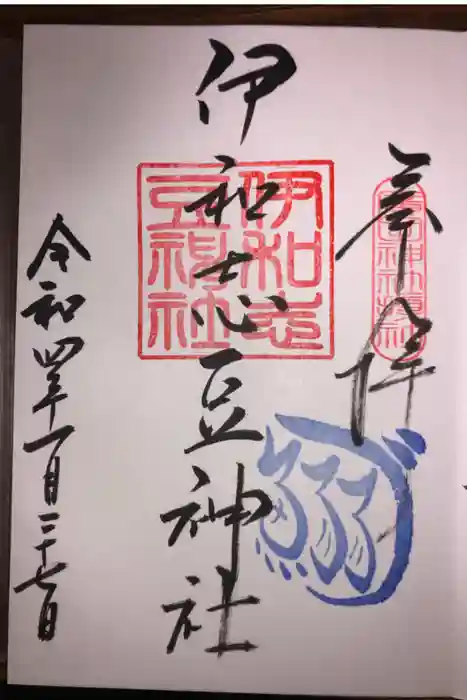 奉拝
伊和志豆神社
伊和志
豆神社
鰯
令和四年一月二十七日